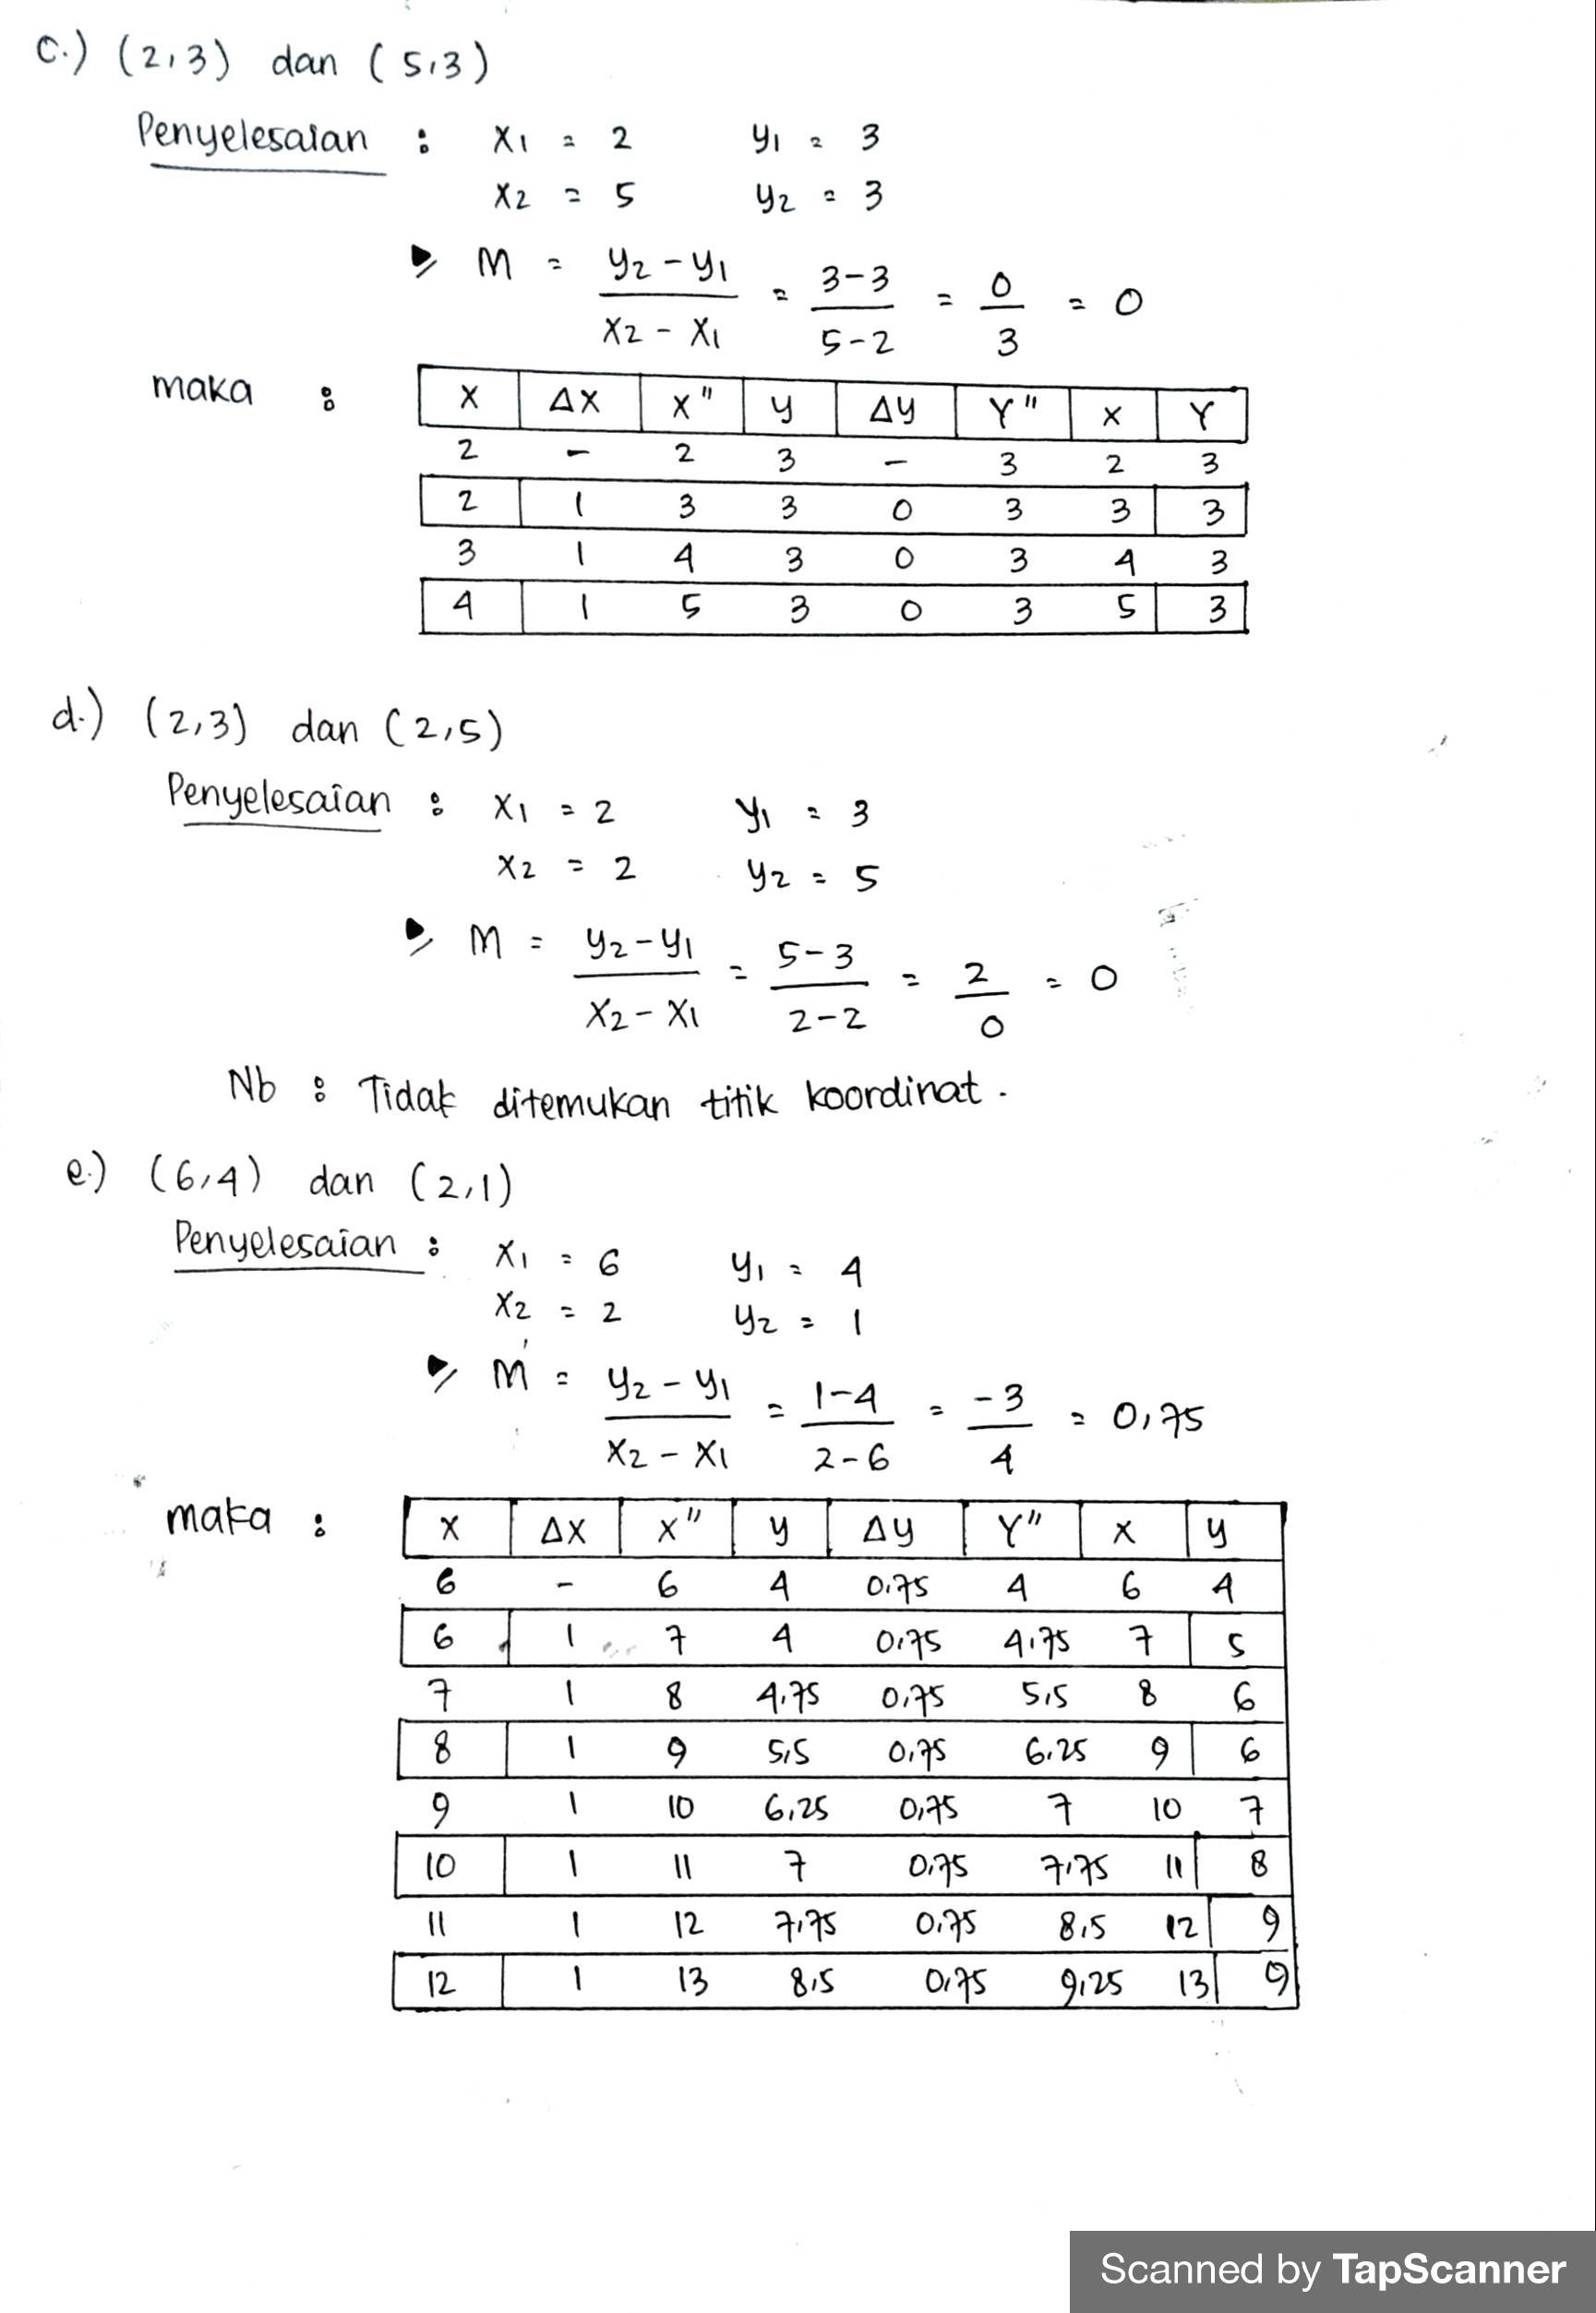 c.) (2,3) dan (5,3)
Penyelesaian : X1 = 2 y1 = 3
X2 = 5 y2 = 3
M = y2 - y1 / x2 - x1 = 3-3 / 5-2 = 0 / 3 = 0
maka :
X ΔX X" y Δy Y" X Y
2 - 2 3 - 3 2 3
2 1 3 3 0 3 3 3
3 1 4 3 0 3 4 3
4 1 5 3 0 3 5 3
d.) (2,3) dan (2,5)
Penyelesaian : X1 = 2 y1 = 3
X2 = 2 y2 = 5
M = y2-y1 / x2-x1 = 5-3 / 2-2 = 2 / 0 = 0
Nb : Tidak ditemukan titik koordinat.
e.) (6,4) dan (2,1)
Penyelesaian : X1 = 6 y1 = 4
X2 = 2 y2 = 1
M = y2 - y1 / x2 - x1 = 1-4 / 2-6 = -3 / 4 = 0,75
maka :
X ΔX X" y Δy Y" X y
6 - 6 4 0,75 4 6 4
6 1 7 4 0,75 4,75 7 5
7 1 8 4,75 0,75 5,5 8 6
8 1 9 5,5 0,75 6,25 9 6
9 1 10 6,25 0,75 7 10 7
10 1 11 7 0,75 7,75 11 8
11 1 12 7,75 0,75 8,5 12 9
12 1 13 8,5 0,75 9,25 13 9
Scanned by TapScanner